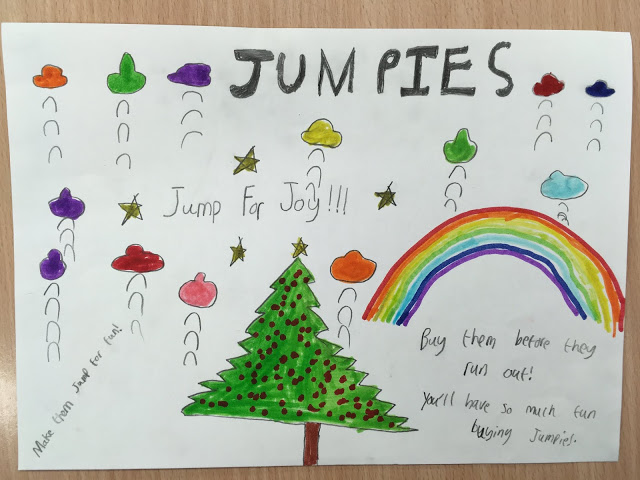 JUMPIES
Jump For Joy!!!
Buy them before they
run out!
You'll have so much fun
buying Jumpies.
Make them Jump For fun!